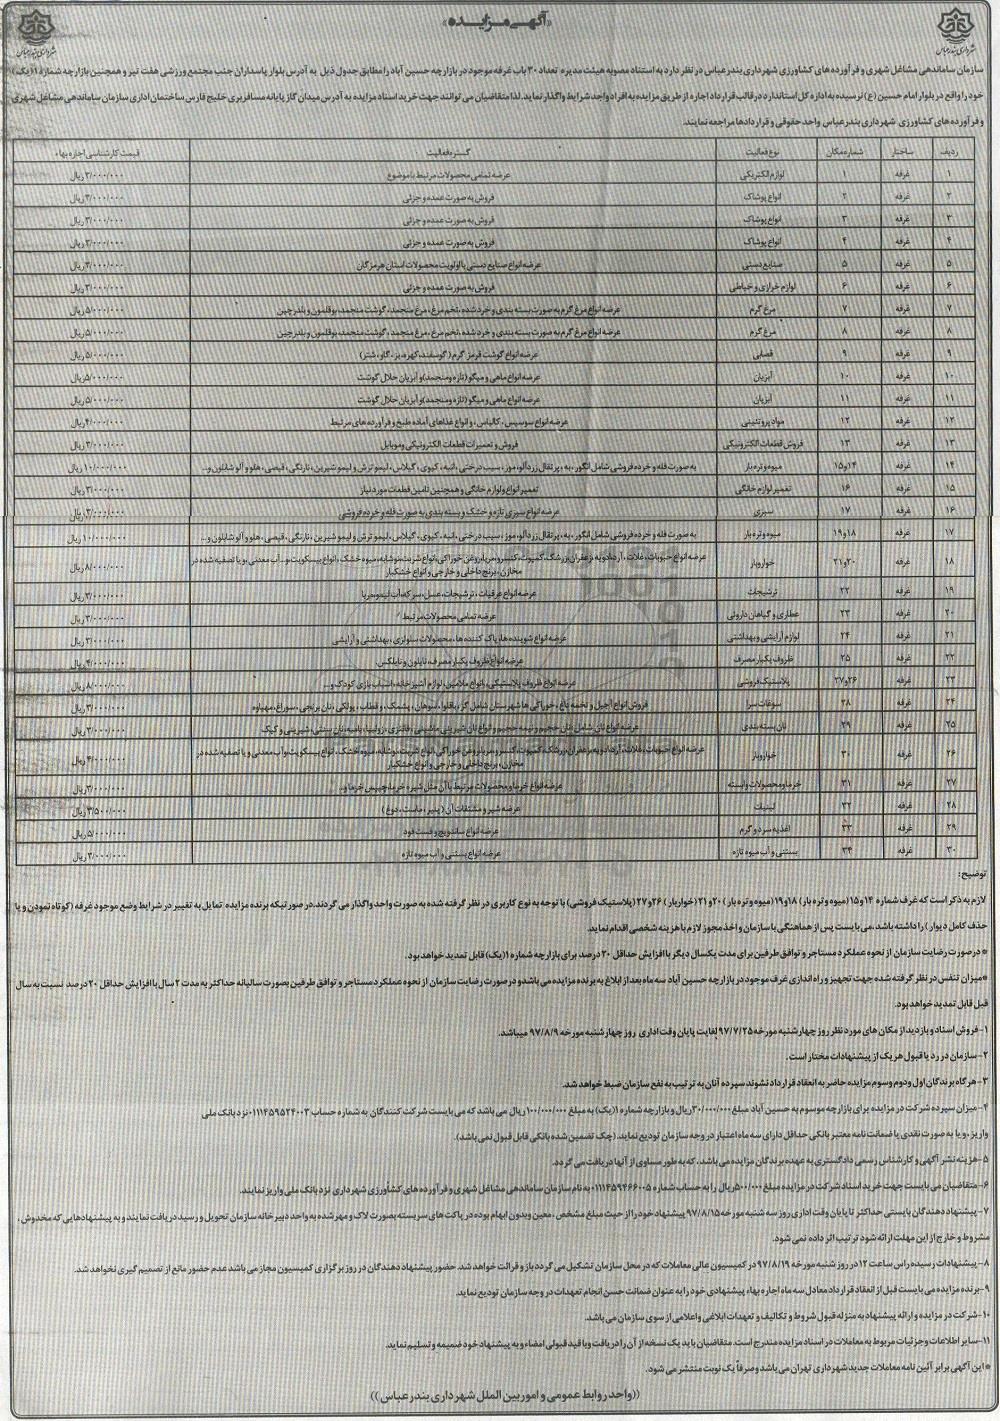 «آگهی مزایده»
شهرداری بندرعباس
شهرداری بندرعباس
سازمان ساماندهی مشاغل شهری و فرآورده های کشاورزی شهرداری بندرعباس در نظر دارد به استناد مصوبه هیئت مدیره تعداد ۳۰ باب غرفه موجود در بازارچه حسین آباد را مطابق جدول ذیل به آدرس بلوار پاسداران جنب مجتمع ورزشی هفت تیر و همچنین بازارچه شماره ۱(یک)
خود را واقع در بلوار امام حسین (ع) نرسیده به اداره کل استاندارد در قالب قرارداد اجاره از طریق مزایده به افراد واجد شرایط واگذار نماید. لذا متقاضیان می توانند جهت خرید اسناد مزایده به آدرس میدان گاز پایانه مسافربری خلیج فارس ساختمان اداری سازمان ساماندهی مشاغل شهری
و فرآورده های کشاورزی شهرداری بندرعباس واحد حقوقی و قراردادها مراجعه نمایند.
ردیف ساختار شماره مکان نوع فعالیت گستره فعالیت قیمت کارشناسی اجاره بهاء
۱ غرفه ۱ لوازم الکتریکی عرضه تمامی محصولات مرتبط با موضوع ۳/۰۰۰/۰۰۰ ریال
۲ غرفه ۲ انواع پوشاک فروش به صورت عمده و جزئی ۳/۰۰۰/۰۰۰ ریال
۳ غرفه ۳ انواع پوشاک فروش به صورت عمده و جزئی ۳/۰۰۰/۰۰۰ ریال
۴ غرفه ۴ انواع پوشاک فروش به صورت عمده و جزئی ۳/۰۰۰/۰۰۰ ریال
۵ غرفه ۵ صنایع دستی عرضه انواع صنایع دستی با اولویت محصولات استان هرمزگان ۳/۰۰۰/۰۰۰ ریال
۶ غرفه ۶ لوازم خرازی و خیاطی فروش به صورت عمده و جزئی ۳/۰۰۰/۰۰۰ ریال
۷ غرفه ۷ مرغ گرم عرضه انواع مرغ گرم به صورت بسته بندی و خرد شده، تخم مرغ، مرغ منجمد، گوشت منجمد، بوقلمون و بلدرچین ۵/۰۰۰/۰۰۰ ریال
۸ غرفه ۸ مرغ گرم عرضه انواع مرغ گرم به صورت بسته بندی و خرد شده، تخم مرغ، مرغ منجمد، گوشت منجمد، بوقلمون و بلدرچین ۵/۰۰۰/۰۰۰ ریال
۹ غرفه ۹ قصابی عرضه انواع گوشت قرمز گرم (گوسفند، کهره، بز، گاو، شتر) ۵/۰۰۰/۰۰۰ ریال
۱۰ غرفه ۱۰ آبزیان عرضه انواع ماهی و میگو (تازه و منجمد) و آبزیان حلال گوشت ۵/۰۰۰/۰۰۰ ریال
۱۱ غرفه ۱۱ آبزیان عرضه انواع ماهی و میگو (تازه و منجمد) و آبزیان حلال گوشت ۵/۰۰۰/۰۰۰ ریال
۱۲ غرفه ۱۲ مواد پروتئینی عرضه انواع سوسیس، کالباس، و انواع غذاهای آماده طبخ و فرآورده های مرتبط ۴/۰۰۰/۰۰۰ ریال
۱۳ غرفه ۱۳ فروش قطعات الکترونیکی فروش و تعمیرات قطعات الکترونیکی و موبایل ۳/۰۰۰/۰۰۰ ریال
۱۴ غرفه ۱۴و۱۵ میوه و تره بار به صورت فله و خرده فروشی شامل انگور، به، پرتقال زردآلو، موز، سیب درختی، انبه، کیوی، گیلاس، لیمو ترش و لیمو شیرین، نارنگی، قیصی، هلو و آلو شابلون و... ۱۰/۰۰۰/۰۰۰ ریال
۱۵ غرفه ۱۶ تعمیر لوازم خانگی تعمیر انواع لوازم خانگی و همچنین تامین قطعات مورد نیاز ۳/۰۰۰/۰۰۰ ریال
۱۶ غرفه ۱۷ سبزی عرضه انواع سبزی تازه و خشک و بسته بندی به صورت فله و خرده فروشی ۳/۰۰۰/۰۰۰ ریال
۱۷ غرفه ۱۸و۱۹ میوه و تره بار به صورت فله و خرده فروشی شامل انگور، به، پرتقال زردآلو، موز، سیب درختی، انبه، کیوی، گیلاس، لیمو ترش و لیمو شیرین، نارنگی، قیصی، هلو و آلو شابلون و... ۱۰/۰۰۰/۰۰۰ ریال
۱۸ غرفه ۲۰و۲۱ خواروبار عرضه انواع حبوبات، غلات، آرد، ادویه، زعفران، زرشک، کمپوت، کنسرو، مربا، روغن خوراکی، انواع شربت، نوشابه، میوه خشک، انواع بیسکویت و... آب معدنی، و یا تصفیه شده در
مخازن، برنج داخلی و خارجی و انواع خشکبار ۸/۰۰۰/۰۰۰ ریال
۱۹ غرفه ۲۲ ترشیجات عرضه انواع عرقیات، ترشیجات، عسل، سرکه، آب لیمو، مربا ۳/۰۰۰/۰۰۰ ریال
۲۰ غرفه ۲۳ عطاری و گیاهان داروئی عرضه تمامی محصولات مرتبط ۳/۰۰۰/۰۰۰ ریال
۲۱ غرفه ۲۴ لوازم آرایشی و بهداشتی عرضه انواع شوینده ها، پاک کننده ها، محصولات سلولزی، بهداشتی و آرایشی ۳/۰۰۰/۰۰۰ ریال
۲۲ غرفه ۲۵ ظروف یکبار مصرف عرضه انواع ظروف یکبار مصرف، نایلون و نایلکس ۴/۰۰۰/۰۰۰ ریال
۲۳ غرفه ۲۶و۲۷ پلاستیک فروشی عرضه انواع ظروف پلاستیکی، انواع ملامین، لوازم آشپزخانه، اسباب بازی کودک و... ۸/۰۰۰/۰۰۰ ریال
۲۴ غرفه ۲۸ سوغات سرا فروش انواع آجیل و تخمه باغ، خوراکی ها شهرستان شامل گز، باقلوا، سوهان، پشمک، و قطاب، پولکی، نان برنجی، سوراغ، مهیاوه ۳/۰۰۰/۰۰۰ ریال
۲۵ غرفه ۲۹ نان بسته بندی عرضه انواع نان شامل نان حجیم و نیمه حجیم و انواع نان شیرینی ماشینی، فانتزی، زولبیا، بامیه، نان سنتی، شیرینی و کیک ۳/۰۰۰/۰۰۰ ریال
۲۶ غرفه ۳۰ خواروبار عرضه انواع حبوبات، غلات، آرد، ادویه، زعفران، زرشک، کمپوت، کنسرو، مربا، روغن خوراکی، انواع شربت، نوشابه، میوه خشک، انواع بیسکویت و آب معدنی و یا تصفیه شده در
مخازن، برنج داخلی و خارجی و انواع خشکبار ۴/۰۰۰/۰۰۰ ریال
۲۷ غرفه ۳۱ خرما و محصولات وابسته عرضه انواع خرما و محصولات مرتبط با آن مثل شیره خرما، چیپس خرما و... ۳/۰۰۰/۰۰۰ ریال
۲۸ غرفه ۳۲ لبنیات عرضه شیر و مشتقات آن (پنیر، ماست، دوغ) ۳/۵۰۰/۰۰۰ ریال
۲۹ غرفه ۳۳ اغذیه سرد و گرم عرضه انواع ساندویچ و فست فود ۵/۰۰۰/۰۰۰ ریال
۳۰ غرفه ۳۴ بستنی و آب میوه تازه عرضه انواع بستنی و آب میوه تازه ۳/۰۰۰/۰۰۰ ریال
توضیح:
لازم به ذکر است که غرف شماره ۱۴و۱۵ (میوه و تره بار) ۱۸و۱۹(میوه و تره بار) ۲۰و۲۱ (خواربار) ۲۶و۲۷ (پلاستیک فروشی) با توجه به نوع کاربری در نظر گرفته شده به صورت واحد واگذار می گردند. در صورتیکه برنده مزایده تمایل به تغییر در شرایط وضع موجود غرفه (کوتاه نمودن و یا
حذف کامل دیوار) را داشته باشد، می بایست پس از هماهنگی با سازمان و اخذ مجوز لازم با هزینه شخصی اقدام نماید.
*در صورت رضایت سازمان از نحوه عملکرد مستاجر و توافق طرفین برای مدت یکسال دیگر با افزایش حداقل ۲۰ درصد برای بازارچه شماره ۱(یک) قابل تمدید خواهد بود.
*میزان تنفس در نظر گرفته شده جهت تجهیز و راه اندازی غرف موجود در بازارچه حسین آباد سه ماه بعد از ابلاغ به برنده مزایده می باشد و در صورت رضایت سازمان از نحوه عملکرد مستاجر و توافق طرفین بصورت سالیانه حداکثر به مدت ۲ سال با افزایش حداقل ۲۰ درصد نسبت به سال
قبل قابل تمدید خواهد بود.
۱-فروش اسناد و بازدید از مکان های مورد نظر روز چهارشنبه مورخه ۹۷/۷/۲۵ لغایت پایان وقت اداری روز چهارشنبه مورخه ۹۷/۸/۹ میباشد.
۲-سازمان در رد یا قبول هریک از پیشنهادات مختار است.
۳-هرگاه برندگان اول و دوم و سوم مزایده حاضر به انعقاد قرارداد نشوند سپرده آنان به ترتیب به نفع سازمان ضبط خواهد شد.
۴-میزان سپرده شرکت در مزایده برای بازارچه موسوم به حسین آباد مبلغ ۳۰/۰۰۰/۰۰۰ ریال و بازارچه شماره ۱(یک) به مبلغ ۱۰۰/۰۰۰/۰۰۰ ریال می باشد که می بایست شرکت کنندگان به شماره حساب ۰۱۱۱۴۵۹۵۲۴۰۰۳ نزد بانک ملی
واریز، و یا به صورت نقدی یا ضمانت نامه معتبر بانکی حداقل دارای سه ماه اعتبار در وجه سازمان تودیع نماید. (چک تضمین شده بانکی قابل قبول نمی باشد).
۵-هزینه نشر آگهی و کارشناس رسمی دادگستری به عهده برندگان مزایده می باشد، که به طور مساوی از آنها دریافت می گردد.
۶-متقاضیان می بایست جهت خرید اسناد شرکت در مزایده مبلغ ۵۰۰/۰۰۰ ریال را به حساب شماره ۰۱۱۱۴۵۹۴۶۶۰۰۵ به نام سازمان ساماندهی مشاغل شهری و فرآورده های کشاورزی شهرداری نزد بانک ملی واریز نمایند.
۷-پیشنهاد دهندگان بایستی حداکثر تا پایان وقت اداری روز سه شنبه مورخه ۹۷/۸/۱۵ پیشنهاد خود را از حیث مبلغ مشخص، معین و بدون ابهام بوده در پاکت های سربسته بصورت لاک و مهر شده به واحد دبیرخانه سازمان تحویل و رسید دریافت نمایند و به پیشنهادهایی که مخدوش،
مشروط و خارج از این مهلت ارائه شود ترتیب اثر داده نمی شود.
۸-پیشنهادات رسیده راس ساعت ۱۲ در روز شنبه مورخه ۹۷/۸/۱۹ در کمیسیون عالی معاملات که در محل سازمان تشکیل می گردد باز و قرائت خواهد شد. حضور پیشنهاد دهندگان در روز برگزاری کمیسیون مجاز می باشد عدم حضور مانع از تصمیم گیری نخواهد شد.
۹-برنده مزایده می بایست قبل از انعقاد قرارداد معادل سه ماه اجاره بهاء پیشنهادی خود را به عنوان ضمانت حسن انجام تعهدات در وجه سازمان تودیع نماید.
۱۰-شرکت در مزایده و ارائه پیشنهاد به منزله قبول شروط و تکالیف و تعهدات ابلاغی و اعلامی از سوی سازمان می باشد.
۱۱-سایر اطلاعات و جزئیات مربوط به معاملات در اسناد مزایده مندرج است. متقاضیان باید یک نسخه از آن را دریافت و با قید قبولی امضاء و به پیشنهاد خود ضمیمه و تسلیم نماید.
*این آگهی برابر آئین نامه معاملات جدید شهرداری تهران می باشد و صرفاً یک نوبت منتشر می شود.
((واحد روابط عمومی و امور بین الملل شهرداری بندرعباس))